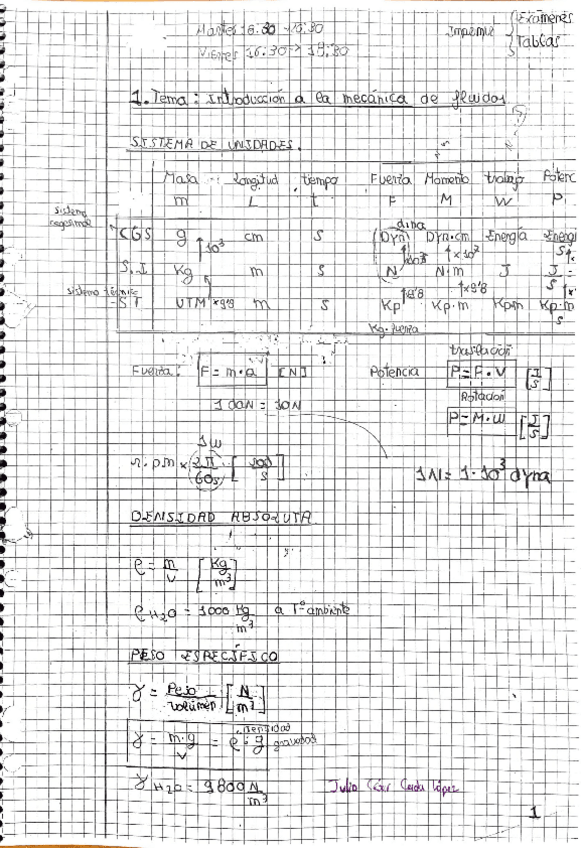 Martes 16:30 → 18:30
Viernes 16:30 → 18:30
Imprimir { Exámenes
Tablas
1. Tema: Introducción a la mecánica de fluidos
SISTEMA DE UNIDADES.
Masa Longitud tiempo Fuerza Momento trabajo Potenc
m L t F M W P
sistema
dina
CGS g cm s Dyn Dyn·cm Energía Energí
10³
S.I Kg m s N N·m J J/s
sistema técnico
ST UTM ×9'8 m s Kp Kp·m Kpm Kp·m/s
Kg·fuerza
Fuerza: F = m·a [N]
1 daN = 10N
Potencia
traslación
P = F·V [J/s]
Rotación
P = M·W [J/s]
1W
r.p.m × 2π/60s [rad/s]
1N = 1·10³ dyna
DENSIDAD ABSOLUTA
ρ = m/v [Kg/m³]
ρ H2O = 1000 Kg/m³ a Tª ambiente
PESO ESPECÍFICO
γ = Peso/volumen [N/m³]
γ = m·g/v = ρ·g
densidad
gravedad
γ H2O = 9800 N/m³
Julio César
López
1